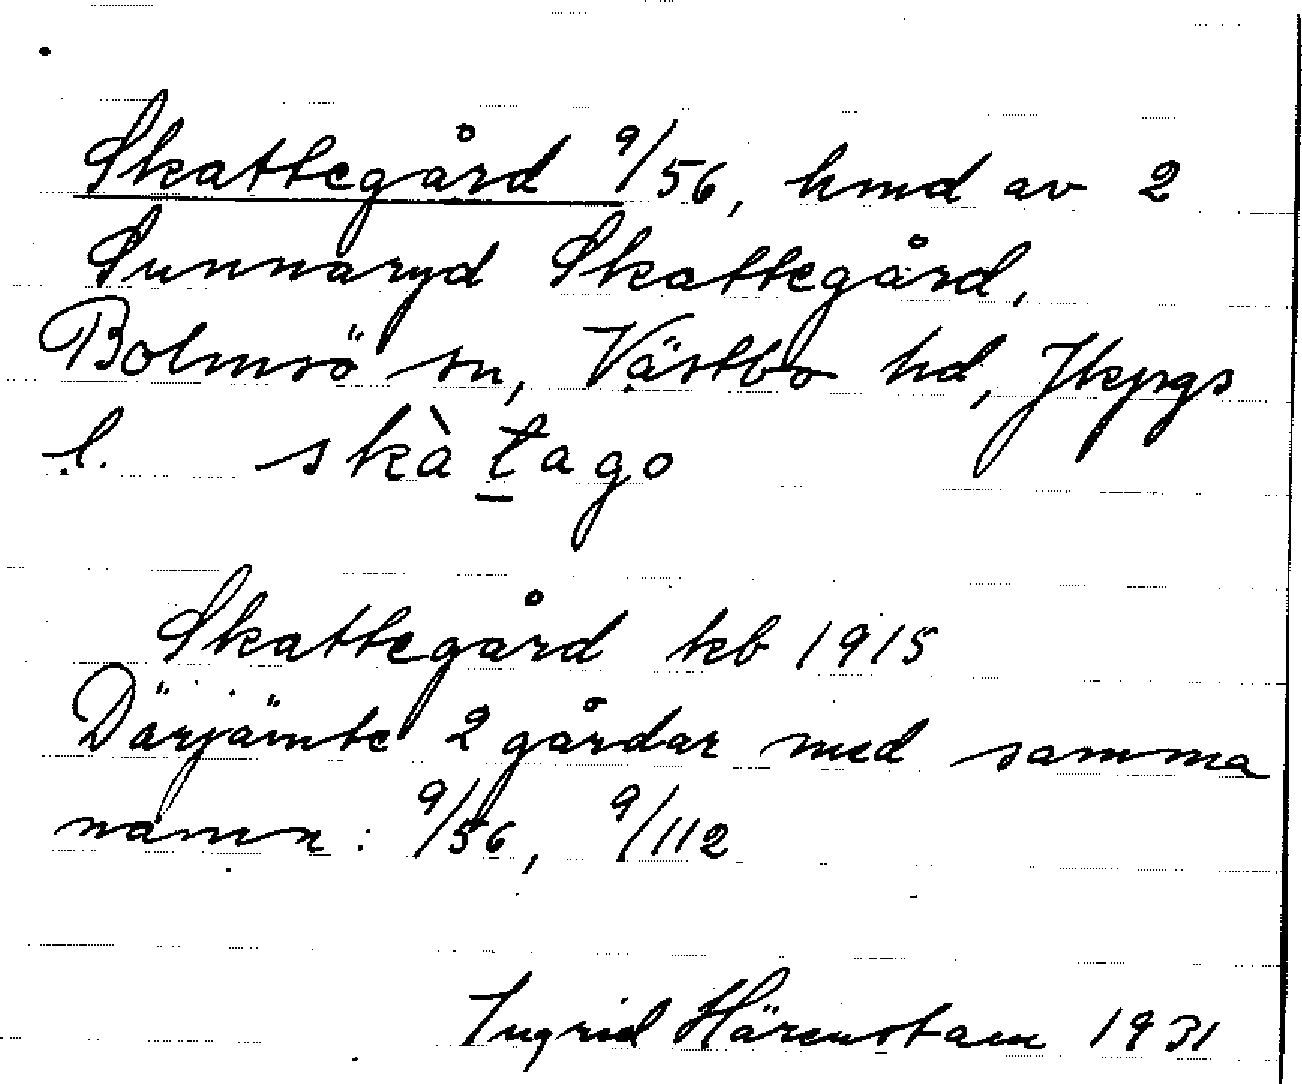 Skattegård 9/56, hmd av 2
Sunnaryd Skattegård,
Bolmsö sn, Västbo hd, Jkpgs
l. skàt̲ago
Skattegård kb 1915
Därjämte 2 gårdar med samma
namn: 9/56, 9/112
Ingrid Härenstam 1931